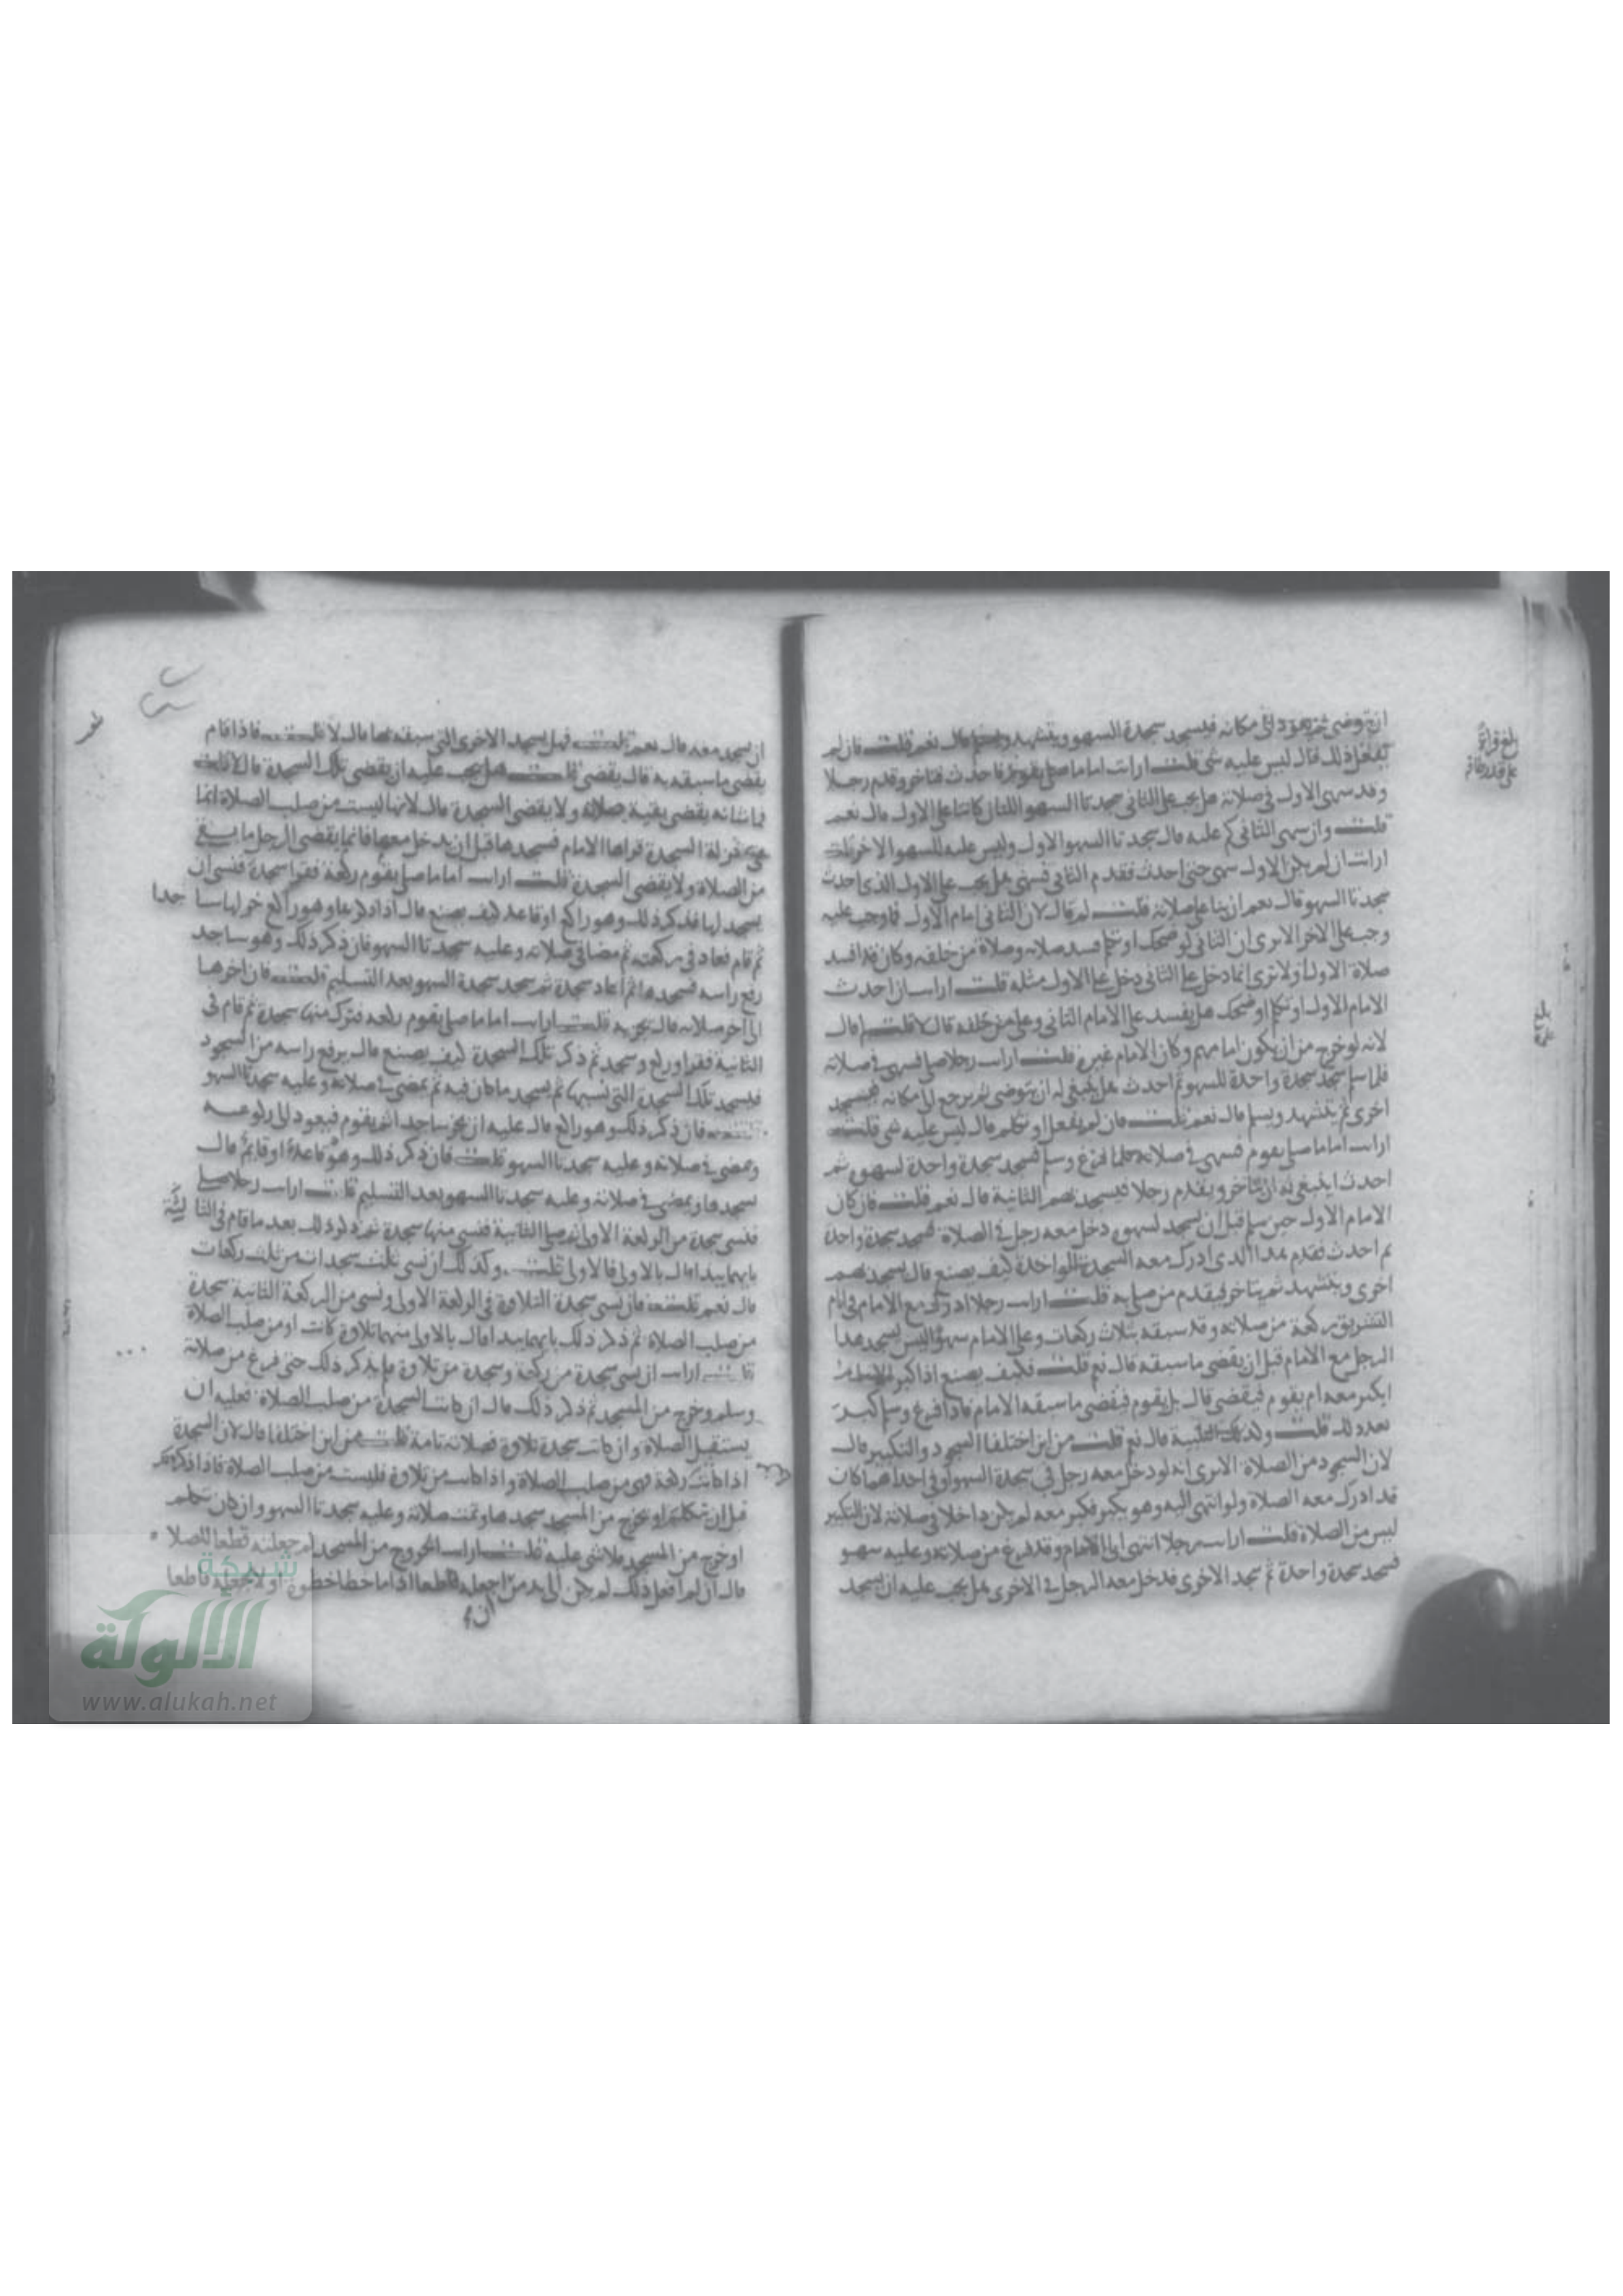 ان يتوضى ثم يعود الى مكانه فيسجد سجدة السهو ويتشهد ويسلم قال نعم قلت فان لم
يفعل ذلك قال ليس عليه شى قلت ارايت اماما صلى بقوم فاحدث فتاخر وقدم رجلا
وقد سهى الاول فى صلاته هل يجب على الثانى سجدتا السهو اللتان كانتا على الاول قال نعم
قلت وان سهى الثانى كم عليه قال سجدتا السهو الاول وليس عليه للسهو الاخر قلت
ارايت ان لم يكن الاول سهى حتى احدث فقدم الثانى فسهى هل يجب على الاول الذى احدث
سجدتا السهو قال نعم ان بنا على صلاته قلت لم قال لان الثانى امام الاول فما وجب عليه
وجب على الاخر الا ترى ان الثانى لو ضحك او تكلم فسد صلاته وصلاة من خلفه وكان قد افسد
صلاة الاول اولا ترى انما دخل على الثانى دخل على الاول مثله قلت ارايت ان احدث
الامام الاول او تكلم او ضحك هل يفسد على الامام الثانى وعلى من خلفه قال لا قلت لم قال
لانه لو خرج من ان يكون امامهم وكان الامام غيره قلت ارايت رجلا صلى فسهى فى صلاته
فلما سلم سجد سجدة واحدة للسهو ثم احدث هل ينبغى له ان يتوضى ثم يرجع الى مكانه فيسجد
اخرى ثم يتشهد ويسلم قال نعم قلت فان لم يفعل او تكلم قال ليس عليه شى قلت
ارايت اماما صلى بقوم فسهى فى صلاته فلما فرغ وسلم فسجد سجدة واحدة لسهوه ثم
احدث اينبغى له ان يتاخر ويقدم رجلا فيسجد بهم الثانية قال نعم قلت فان كان
الامام الاول حين سلم قبل ان يسجد لسهوه دخل معه رجل فى الصلاة فسجد سجدة واحدة
ثم احدث فقدم هذا الذى ادرك معه السجدة الواحدة كيف يصنع قال يسجد بهم
اخرى ويتشهد ثم يتاخر فيقدم من صلى به قلت ارايت رجلا ادرك مع الامام فى ايام
التشريق ركعة من صلاته وقد سبقه بثلاث ركعات وعلى الامام سهو اليس يسجد هذا
الرجل مع الامام قبل ان يقضى ما سبقه قال نعم قلت فكيف يصنع اذا كبر الامام
ايكبر معه ام يقوم فيقضى قال بل يقوم فيقضى ما سبقه الامام فاذا فرغ وسلم كبر
بعد ذلك قلت وكذلك التلبية قال نعم قلت من اين اختلفا السجود والتكبير قال
لان السجود من الصلاة الا ترى انه لو دخل معه رجل فى سجدة السهو او فى احداهما كان
قد ادرك معه الصلاة ولو انتهى اليه وهو يكبر فكبر معه لم يكن داخلا فى صلاته لان التكبير
ليس من الصلاة قلت ارايت رجلا انتهى الى الامام وقد فرغ من صلاته وعليه سهو
فسجد سجدة واحدة ثم سجد الاخرى فدخل معه الرجل فى الاخرى هل يجب عليه ان يسجد
ان يسجد معه قال نعم قلت فهل يسجد الاخرى التى سبقه بها قال لا قلت فاذا قام
يقضى ما سبقه به قال يقضى قلت هل يجب عليه ان يقضى تلك السجدة قال لا قلت
فما شانه يقضى بقية صلاته ولا يقضى السجدة قال لانها ليست من صلب الصلاة انما
هى بمنزلة السجدة قراها الامام فسجدها قبل ان يدخل معها فانما يقضى الرجل ما بقى
من الصلاة ولا يقضى السجدة قلت ارايت اماما صلى بقوم ركعة فقرا سجدة فنسى ان
يسجد لها فذكر ذلك وهو راكع او قاعد كيف يصنع قال اذا ذكرها وهو راكع خر لها ساجدا
ثم قام فعاد فى ركعته ثم مضا فى صلاته وعليه سجدتا السهو فان ذكر ذلك وهو ساجد
رفع راسه فسجدها ثم اعاد سجدة ثم سجد سجدة السهو بعد التسليم قلت فان اخرها
الى اخر صلاته قال تجزيه قلت ارايت اماما صلى بقوم ركعة فترك منها سجدة ثم قام فى
الثانية فقرا وركع وسجد ثم ذكر تلك السجدة كيف يصنع قال يرفع راسه من السجود
فيسجد تلك السجدة التى نسيها ثم يسجد ما كان فيه ثم يمضى فى صلاته وعليه سجدتا السهو
قلت فان ذكر ذلك وهو راكع قال عليه ان يخر ساجدا ثم يقوم فيعود الى ركوعه
ويمضى فى صلاته وعليه سجدتا السهو قلت فان ذكر ذلك وهو قاعد او قائم قال
يسجدها ويمضى فى صلاته وعليه سجدتا السهو بعد التسليم قلت ارايت رجلا صلى
فنسى سجدة من الركعة الاولى ثم صلى الثانية فنسى منها سجدة ثم ذكر ذلك بعد ما قام فى الثالثة
بايهما يبدا قال بالاولى فالاولى قلت وكذلك ان نسى ثلث سجدات من ثلث ركعات
قال نعم قلت فان نسى سجدة التلاوة فى الركعة الاولى ونسى من الركعة الثانية سجدة
من صلب الصلاة ثم ذكر ذلك بايهما يبدا قال بالاولى منهما تلاوة كانت او من صلب الصلاة
قلت ارايت ان نسى سجدة من ركعة وسجدة من تلاوة فلم يذكر ذلك حتى فرغ من صلاته
وسلم وخرج من المسجد ثم ذكر ذلك قال ان كانت السجدة من صلب الصلاة فعليه ان
يستقبل الصلاة وان كانت سجدة تلاوة فصلاته تامة قلت من اين اختلفا قال لان السجدة
اذا كانت ركعة فهى من صلب الصلاة واذا كانت من تلاوة فليست من صلب الصلاة فاذا ذكرها
قبل ان يتكلم او يخرج من المسجد سجدها وتمت صلاته وعليه سجدتا السهو وان كان تكلم
او خرج من المسجد فلا شى عليه قلت ارايت الخروج من المسجد لم جعلته قطعا للصلاة
قال ان لم افعل ذلك لم يكن لى بد من ان اجعله قاطعا اذا ما خطا خطوة او لا اجعله قاطعا
شبكة
الألوكة
www.alukah.net